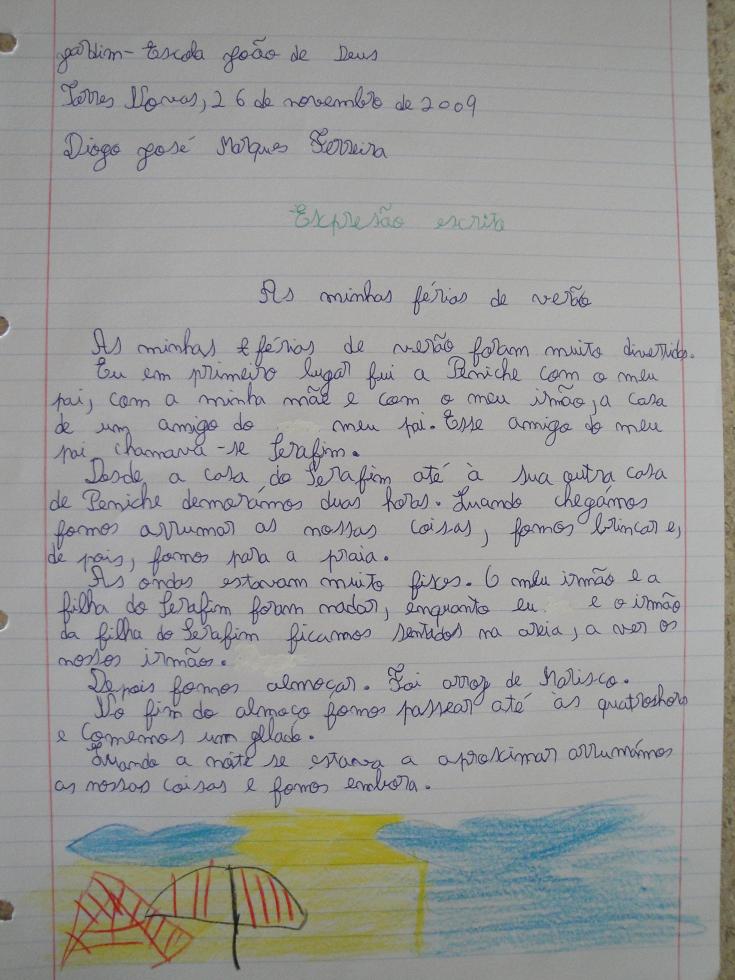 Jardim-Escola João de Deus
Torres Novas, 26 de novembro de 2009
Diogo José Marques Ferreira
Expresão escrita
As minhas férias de verão
As minhas férias de verão foram muito divertidas.
Eu em primeiro lugar fui a Peniche com o meu
pai, com a minha mãe e com o meu irmão, a casa
de um amigo do meu pai. Esse amigo do meu
pai chamava-se Serafim.
Desde a casa do Serafim até à sua outra casa
de Peniche demorámos duas horas. Quando chegámos
fomos arrumar as nossas coisas, fomos brincar e,
de pois, fomos para a praia.
As ondas estavam muito fixes. O meu irmão e a
filha do Serafim foram nadar, enquanto eu e o irmão
da filha do Serafim ficamos sentados na areia, a ver os
nossos irmão.
Depois fomos almoçar. Foi arroz de Marisco.
No fim do almoço fomos passear até às quatroshoras
e comemos um gelado.
Quando a noite se estava a aproximar arrumámos
as nossas coisas e fomos embora.